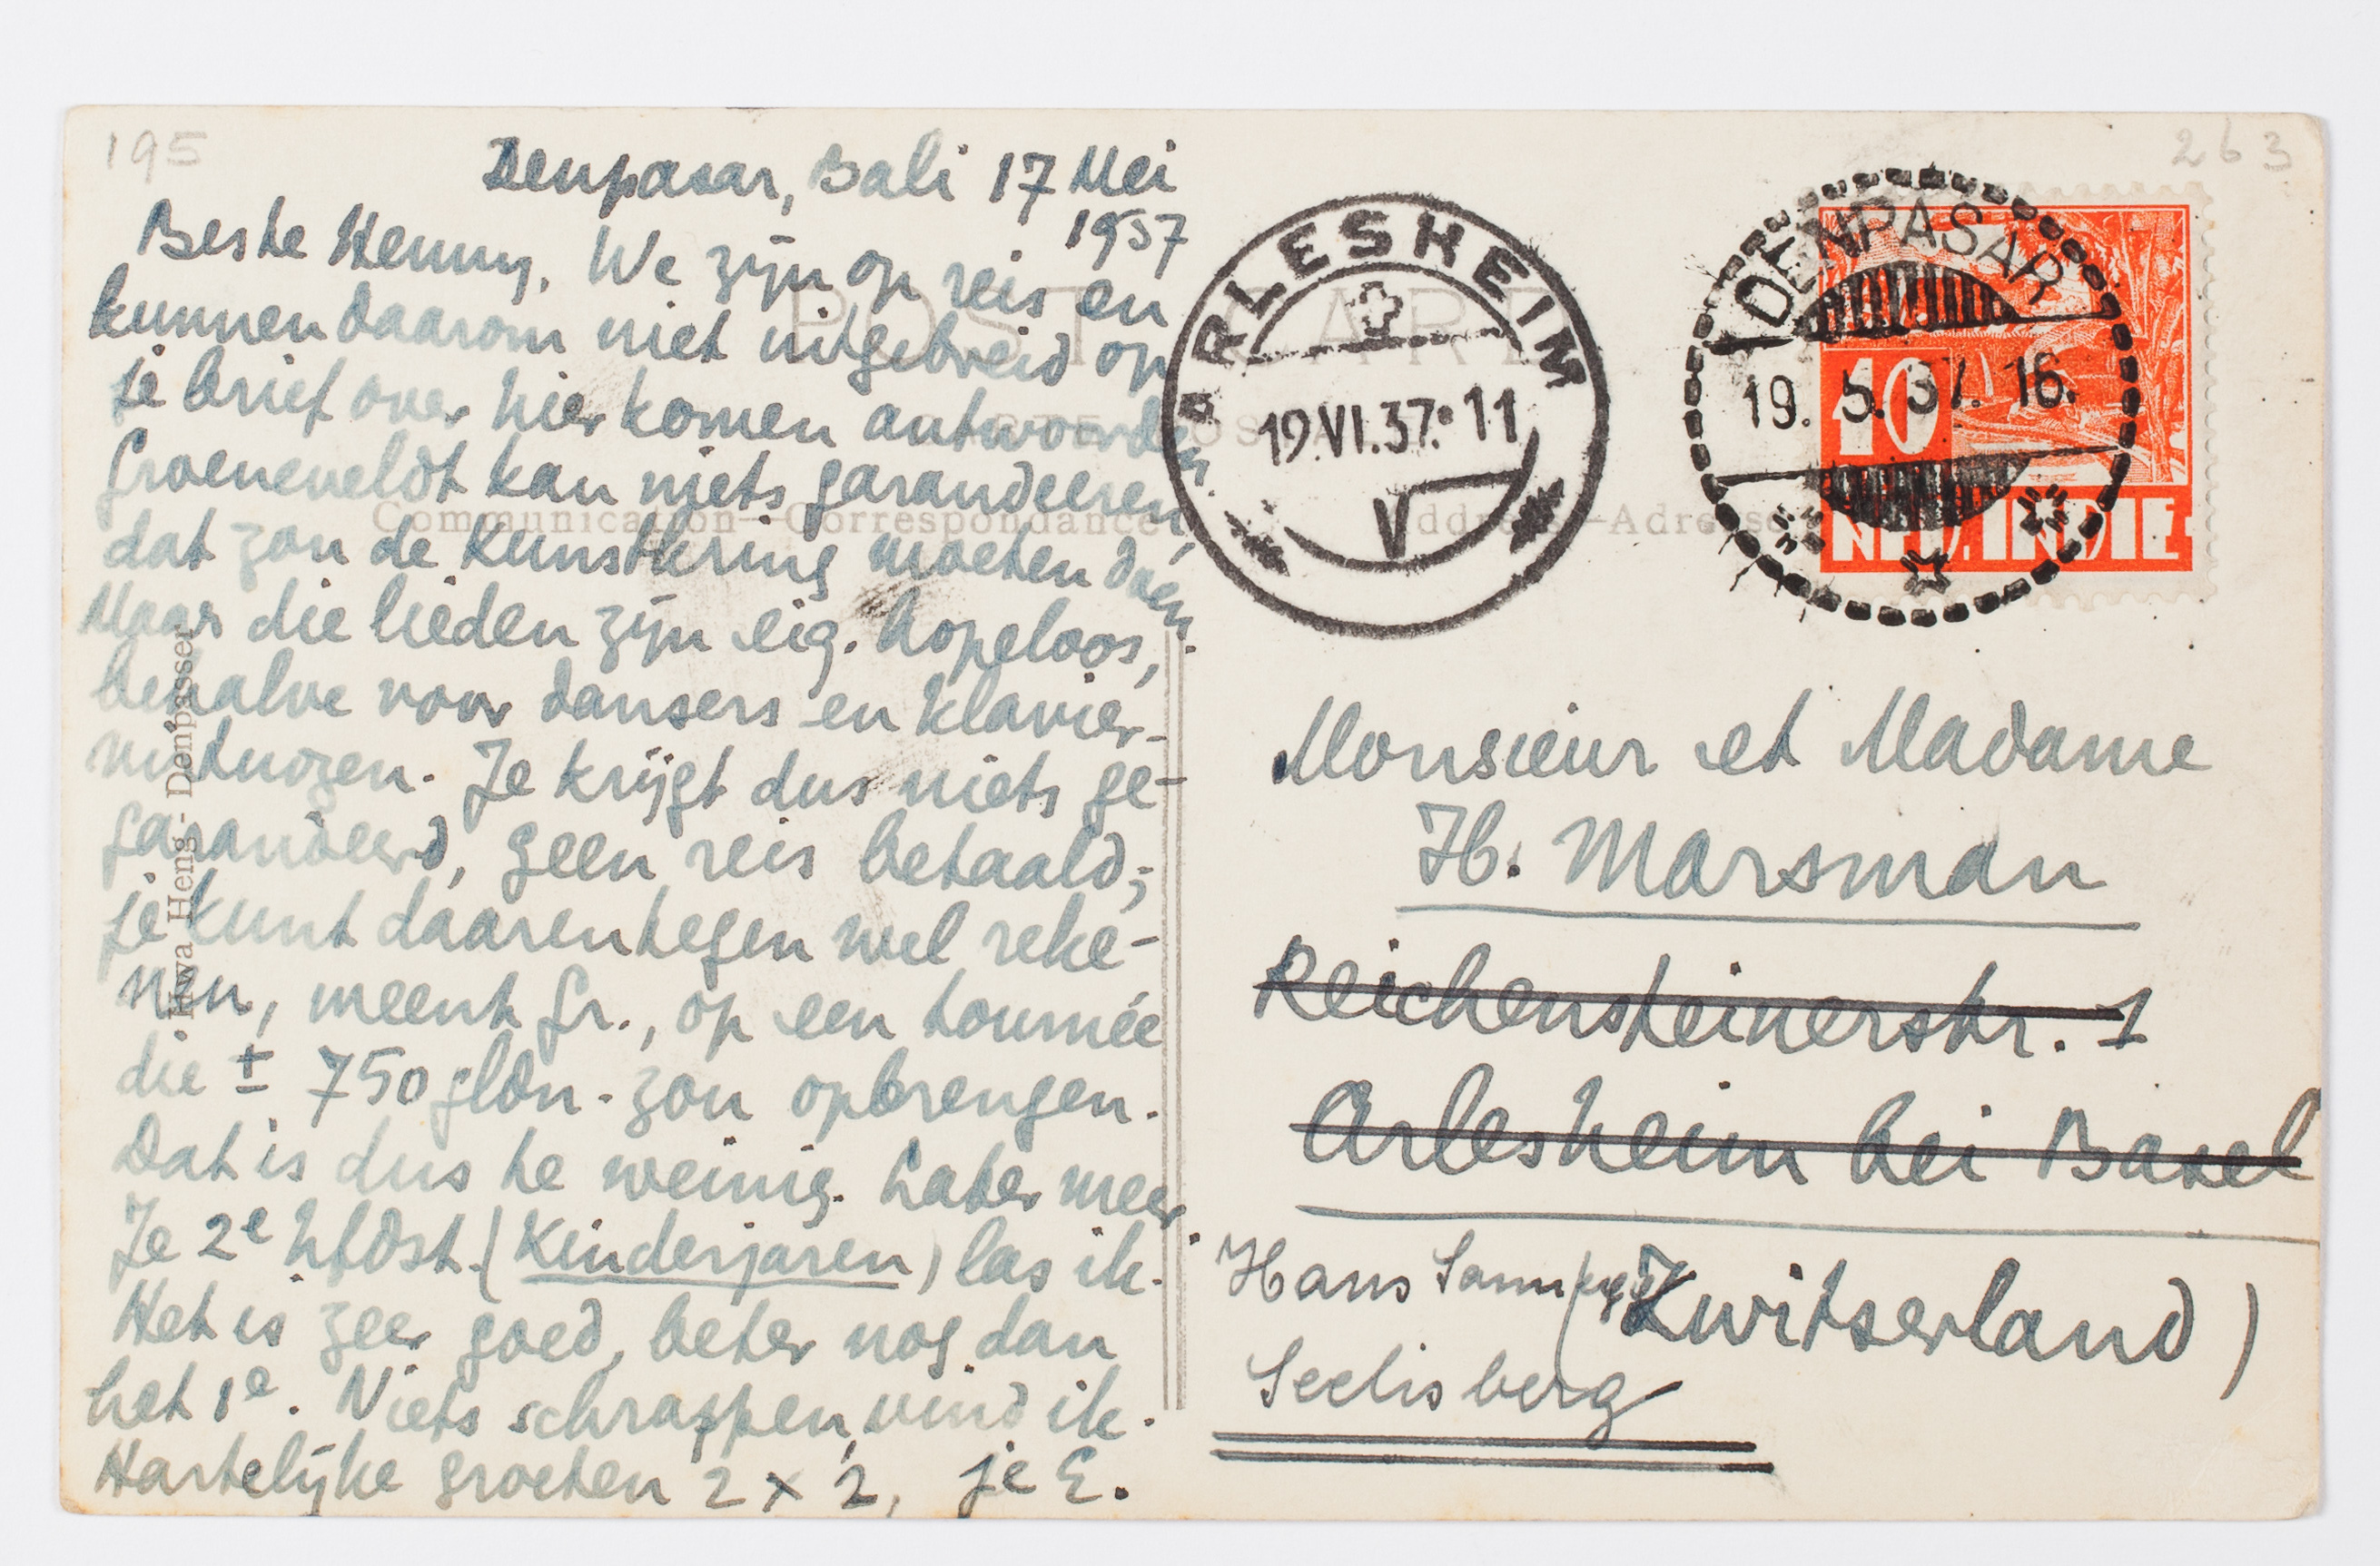 195
263
Denpasar, Bali 17 Mei
1937
Beste Henny, We zijn op reis en
kunnen daarom niet uitgebreid op
je brief over hier komen antwoorden.
Groeneveldt kan niets garandeeren,
dat zou de Kunstkring moeten doen.
Maar die lieden zijn eig. hopeloos,
behalve voor dansers en klavier-
virtuozen. Je krijgt dus niets ge-
garandeerd, geen reis betaald;
je kunt daarentegen wel reke-
nen, meent Gr., op een tournée
die ± 750 gldn. zou opbrengen.
Dat is dus te weinig. Later meer.
Je 2e hfdst. (Kinderjaren) las ik.
Het is zeer goed, beter nog dan
het 1e. Niets schrappen, vind ik.
Hartelijke groeten 2 x 2, je E.
Hwa Heng - Denpasser
POST CARD
Communication—Correspondance
Address—Adresse
ARLESHEIM
19.VI.37.11
V
DENPASAR
19.5.37.16.
10
NED. INDIE
Monsieur et Madame
H. Marsman
Reichensteinerstr. 1
Arlesheim bei Basel
(Zwitserland)
Hans
Seelisberg